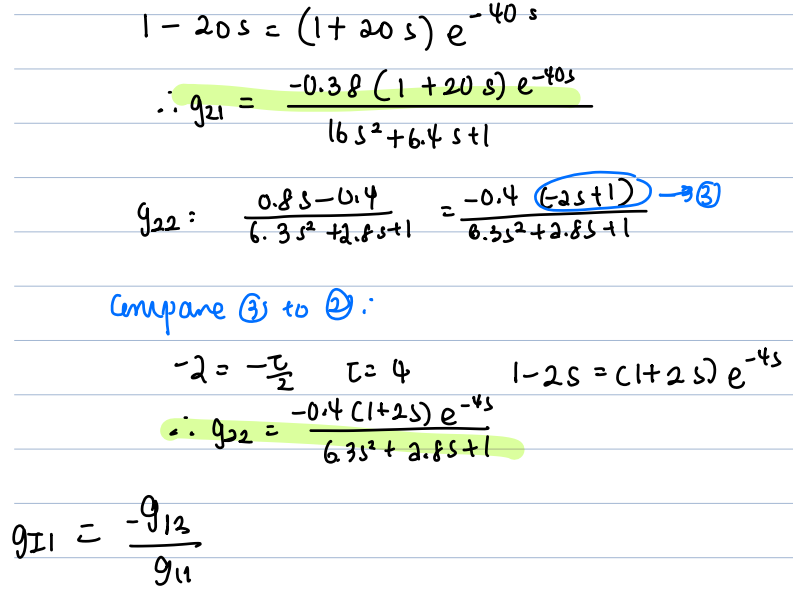 1 - 20s = (1 + 20s) e^{-40s}
∴ g₂₁ = \frac{-0.38 (1 + 20s) e^{-40s}}{16s² + 6.4s + 1}
g₂₂ : \frac{0.8s - 0.4}{6.3s² + 2.8s + 1} = \frac{-0.4 (-2s + 1)}{6.3s² + 2.8s + 1} → ③
Compare ③s to ② :
-2 = -\frac{τ}{2} τ = 4 1 - 2s = (1 + 2s) e^{-4s}
∴ g₂₂ = \frac{-0.4 (1 + 2s) e^{-4s}}{6.3s² + 2.8s + 1}
g_{I1} = \frac{-g₁₂}{g₁₁}